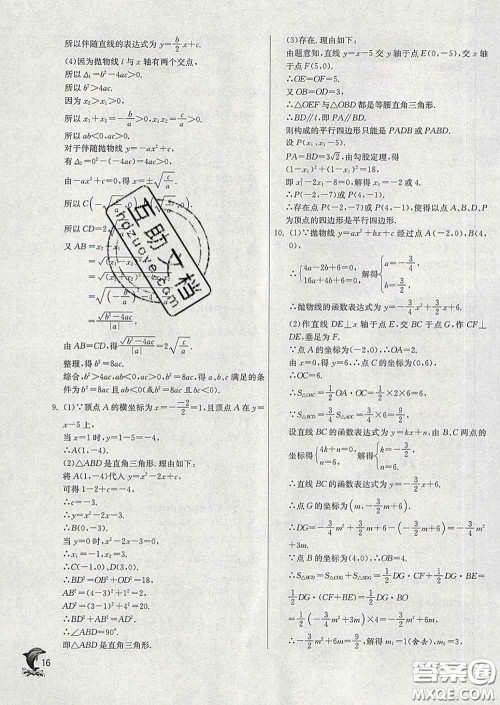 所以伴随直线的表达式为 y=b/2 x+c.
(4)因为抛物线 l 与 x 轴有两个交点,
所以 Δ₁=b²-4ac>0.
所以 b²>4ac.
因为 x₂>x₁>0,
所以 x₁+x₂=-b/a>0, x₁x₂=c/a>0.
所以 ab<0, ac>0.
对于伴随抛物线 y=-ax²+c,
有 Δ₂=0²-(-4ac)=4ac>0.
由-ax²+c=0, 得 x=±√(c/a)
所以 CD=2
又 AB=x₂-x₁
由 AB=CD, 得 √(b²-4ac)/|a|=2√(c/a),
整理, 得 b²=8ac.
综合, b²>4ac, ab<0, ac>0, b²=8ac, 得 a,b,c 满足的条
件为 b²=8ac 且 ab<0.
9. (1)∵顶点 A 的横坐标为 x=-(-2)/2=1, 且顶点 A 在 y=
x-5 上,
当 x=1 时, y=1-5=-4.
∴A(1,-4).
(2)△ABD 是直角三角形. 理由如下:
将 A(1,-4)代入 y=x²-2x+c,
可得 1-2+c=-4,
∴c=-3.
∴y=x²-2x-3.
∴B(0,-3).
当 y=0 时, x²-2x-3=0,
∴x₁=-1, x₂=3.
∴C(-1,0), D(3,0).
∴BD²=OB²+OD²=18,
AB²=(4-3)²+1²=2,
AD²=(3-1)²+4²=20.
∴BD²+AB²=AD².
∴∠ABD=90°.
即△ABD 是直角三角形.
(3)存在. 理由如下:
由题意知, 直线 y=x-5 交 y 轴于点 E(0,-5), 交 x
轴于点 F(5,0).
∴OE=OF=5.
又 OB=OD=3,
∴△OEF 与△OBD 都是等腰直角三角形.
∴BD∥l, 即 PA∥BD.
则构成的平行四边形只能是 PADB 或 PABD.
设 P(x₁,x₁-5).
PA=BD=3√2, 由勾股定理, 得
(1-x₁)²+(1-x₁)²=18.
即 x₁²-2x₁-8=0, 解得 x₁=-2 或 4.
∴P(-2,-7)或 P(4,-1).
∴存在点 P(-2,-7)或 P(4,-1), 使得以点 A,B,D,P
为顶点的四边形是平行四边形.
10. (1)∵抛物线 y=ax²+bx+c 经过点 A(-2,0), B(4,
0),
∴{4a-2b+6=0, 16a+4b+6=0, 解得{a=-3/4, b=3/2.
∴抛物线的函数表达式为 y=-3/4 x²+3/2 x+6.
(2)作直线 DE⊥x 轴于点 E, 交 BC 于点 G, 作 CF⊥
DE, 垂足为 F.
∵点 A 的坐标为(-2,0), ∴OA=2.
由 x=0, 得 y=6, ∴点 C 的坐标为(0,6),
∴OC=6.
∴S△OAC=1/2 OA·OC=1/2×2×6=6,
∴S△BCD=3/4 S△AOC=3/4×6=9/2.
设直线 BC 的函数表达式为 y=kx+n, 由 B,C 两点的
坐标得{4k+n=0, n=6, 解得{k=-3/2, n=6.
∴直线 BC 的函数表达式为 y=-3/2 x+6.
∴点 G 的坐标为(m,-3/2 m+6).
∴DG=-3/4 m²+3/2 m+6-(-3/2 m+6)=-3/4 m²+
3m.
∵点 B 的坐标为(4,0), ∴OB=4.
∴S△BCD=S△CDG+S△BDG=1/2 DG·CF+1/2 DG·BE=
1/2 DG·(CF+BE)=1/2 DG·BO
=1/2(-3/4 m²+3m)×4=-3/2 m²+6m.
∴-3/2 m²+6m=9/2, 解得 m₁=1(舍去), m₂=3.
16
互助文档
hdzuoye.com
答案圈
MXQE.COM